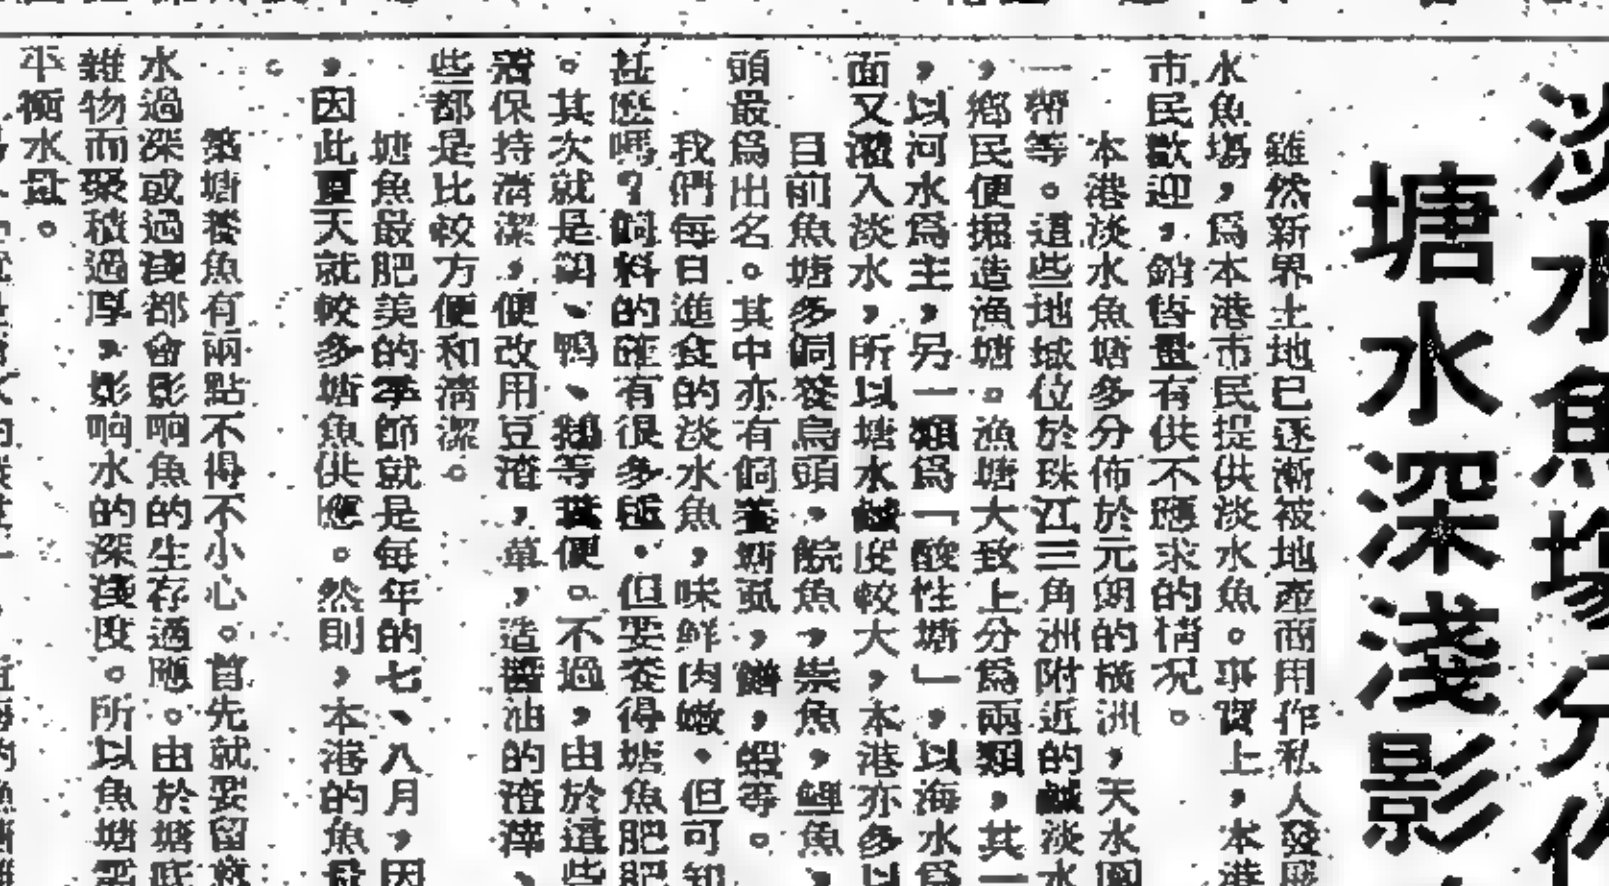 淡水魚塲分佈
塘水深淺影
雖然新界土地已逐漸被地產商用作私人發展
水魚塲，爲本港市民提供淡水魚。事實上，本港
市民歡迎，銷售量有供不應求的情況。
本港淡水魚塘多分佈於元朗的橫洲，天水圍
一帶等。這些地域位於珠江三角洲附近的鹹淡水
，鄉民便掘造漁塘。漁塘大致上分爲兩類，其一
，以河水爲主，另一類爲「酸性塘」，以海水爲
面又灌入淡水，所以塘水鹹度較大，本港亦多以
目前魚塘多飼養烏頭，鯇魚，魚，鯉魚，
頭最爲出名。其中亦有飼養塘虱，鱔，蝦等。
我們每日進食的淡水魚，味鮮肉嫩。但可知
甚麼嗎？飼料的確有很多種。但要養得塘魚肥肥
。其次就是鷄、鴨、鵝等糞便。不過，由於這些
保持清潔，便改用豆渣，草，造醬油的渣滓、
些都是比較方便和清潔。
塘魚最肥美的季節就是每年的七、八月，因
，因此夏天就較多塘魚供應。然則，本港的魚最
。
築塘養魚有兩點不得不小心。首先就要留意
水過深或過淺都會影响魚的生存適應。由於塘底
雜物而聚積過厚，影响水的深淺度。所以魚塘需
平衡水量。